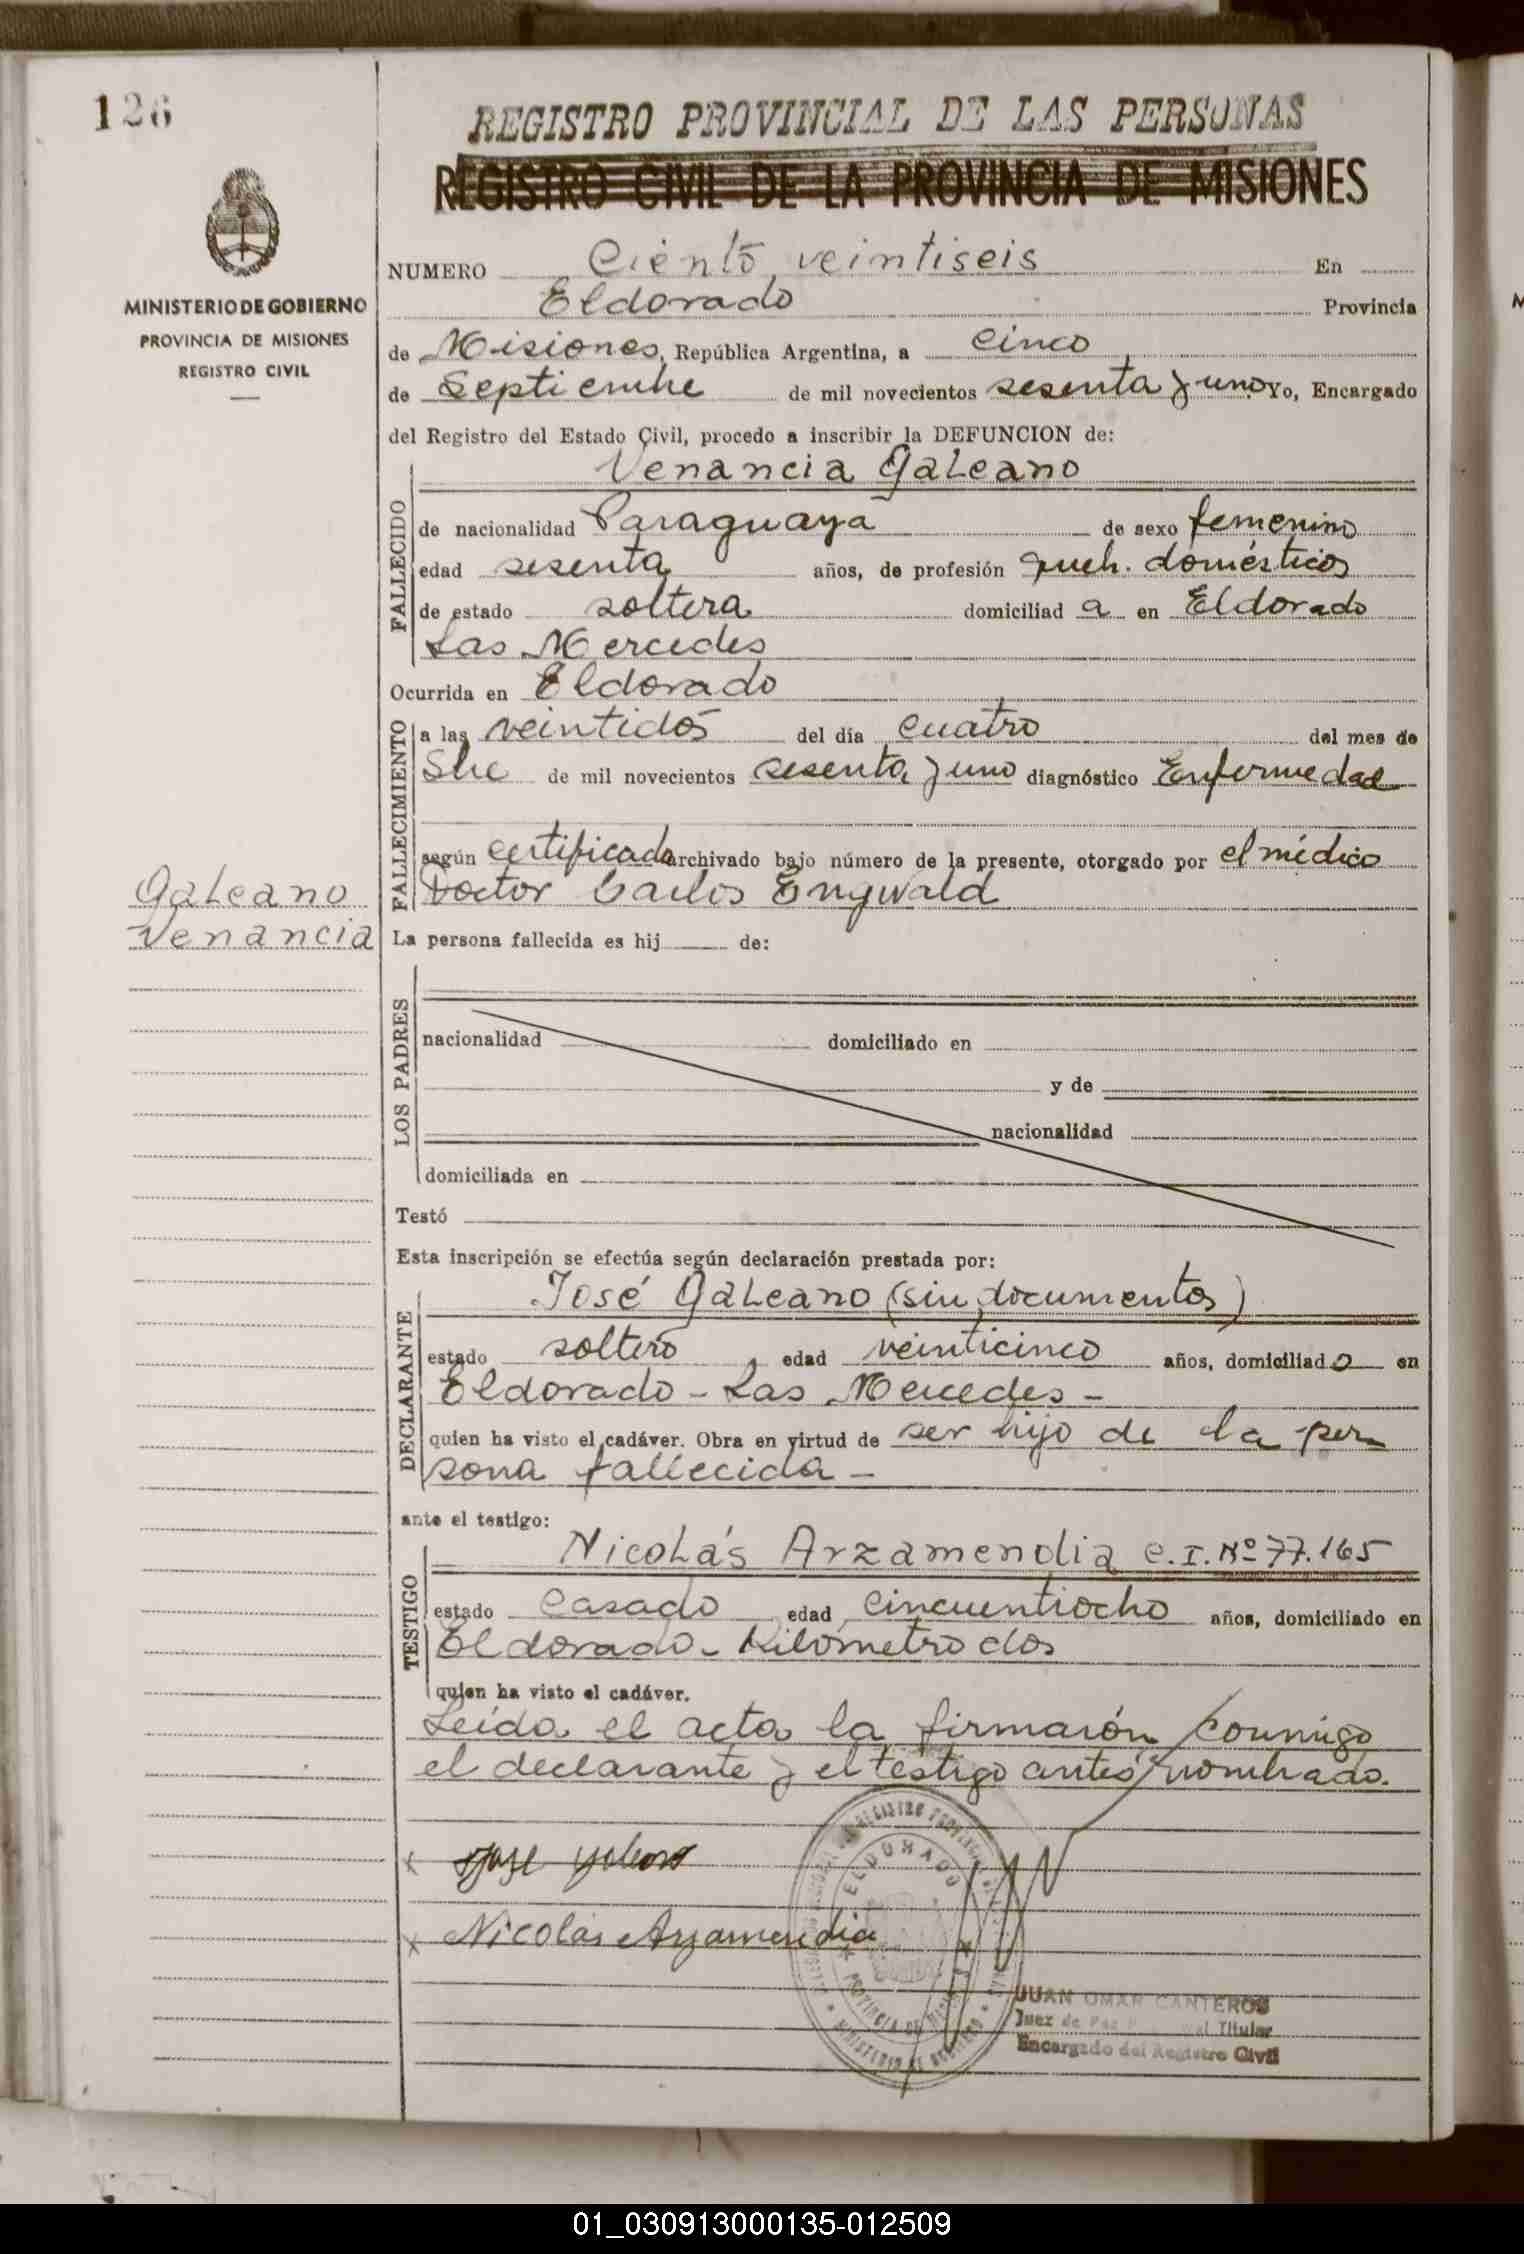 126
REGISTRO PROVINCIAL DE LAS PERSONAS
REGISTRO CIVIL DE LA PROVINCIA DE MISIONES
MINISTERIO DE GOBIERNO
PROVINCIA DE MISIONES
REGISTRO CIVIL
NUMERO Ciento veintiseis En
Eldorado Provincia
de Misiones, República Argentina, a cinco
de Septiembre de mil novecientos sesenta y uno Yo, Encargado
del Registro del Estado Civil, procedo a inscribir la DEFUNCION de:
Venancia Galeano
FALLECIDO
de nacionalidad Paraguaya de sexo femenino
edad sesenta años, de profesión queh. domésticos
de estado soltera domiciliad a en Eldorado
Las Mercedes
Ocurrida en Eldorado
FALLECIMIENTO
a las veintidós del día cuatro del mes de
Sbe de mil novecientos sesenta y uno diagnóstico Enfermedad
según certificado archivado bajo número de la presente, otorgado por el médico
Doctor Carlos Engwald
Galeano
Venancia
La persona fallecida es hij de:
LOS PADRES
nacionalidad domiciliado en
y de
nacionalidad
domiciliada en
Testó
Esta inscripción se efectúa según declaración prestada por:
José Galeano (sin documentos)
DECLARANTE
estado soltero edad veinticinco años, domiciliado en
Eldorado - Las Mercedes -
quien ha visto el cadáver. Obra en virtud de ser hijo de la per
sona fallecida -
ante el testigo:
Nicolás Arzamendia C.I. Nº 77.165
TESTIGO
estado casado edad cincuentiocho años, domiciliado en
Eldorado - Kilómetro dos
quien ha visto el cadáver.
Leída el acta la firmarón conmigo
el declarante y el testigo antes nombrado.
x Jose
x Nicolás Arzamendia
REGISTRO PROVINCIAL DE LAS
ELDORADO
PROVINCIA DE MISIONES
MINISTERIO DE GOBIERNO
JUAN OMAR CANTEROS
Juez de Paz Titular
Encargado del Registro Civil
01_030913000135-012509